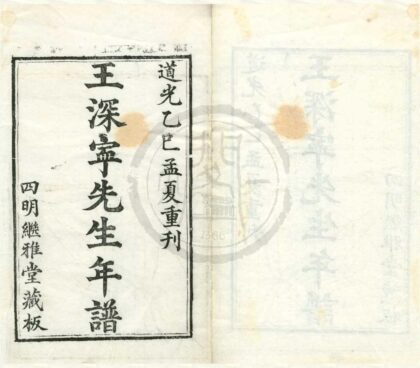 道光乙巳孟夏重刊
王深寧先生年譜
四明繼雅堂藏板